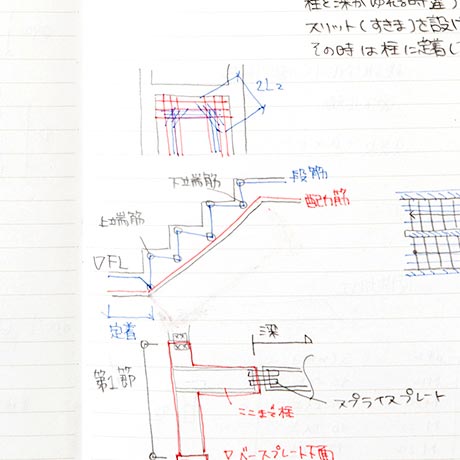 柱と梁がゆれる時違う
スリット(すきま)を設け
その時は柱に定着し
2L2
下端筋
段筋
配力筋
上端筋
▽FL
定着
梁
第1節
スプライスプレート
ここまで柱
▽ベースプレート下面